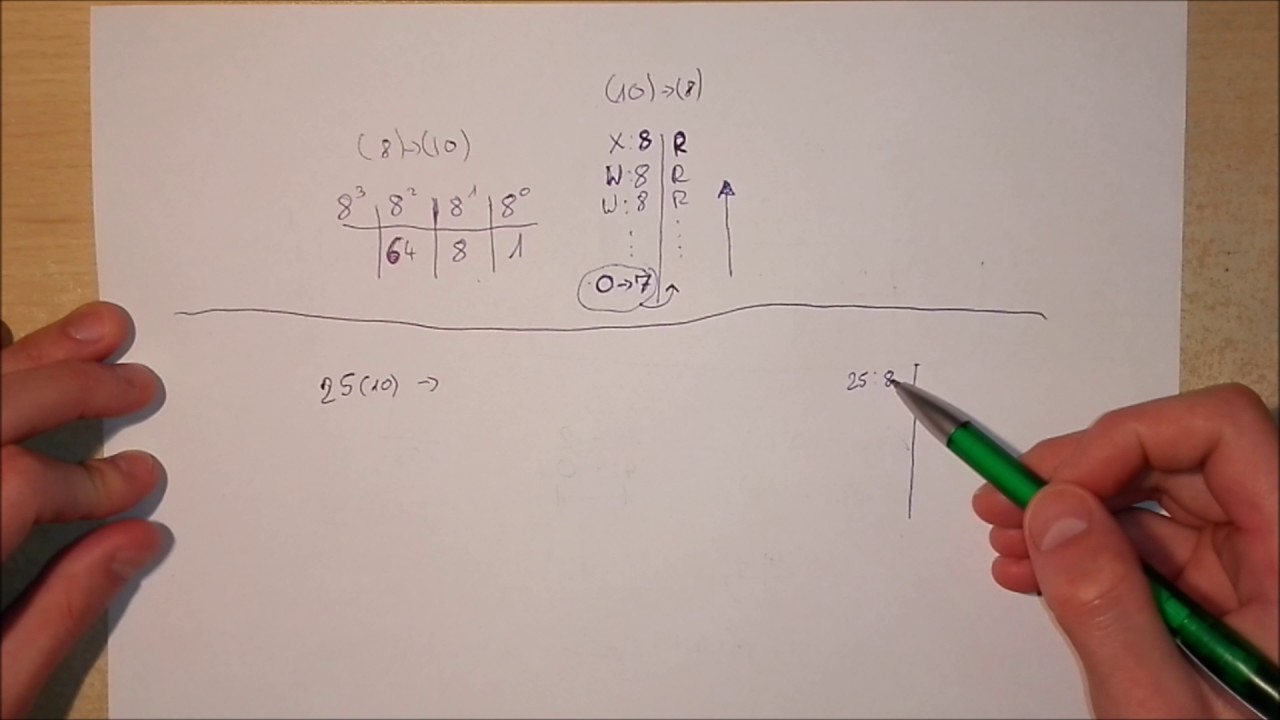 (8)→(10)
8³ 8² 8¹ 8⁰
64 8 1
(10)→(8)
X:8 R
W:8 R
W:8 R
: :
: :
0→7
25(10) →
25:8